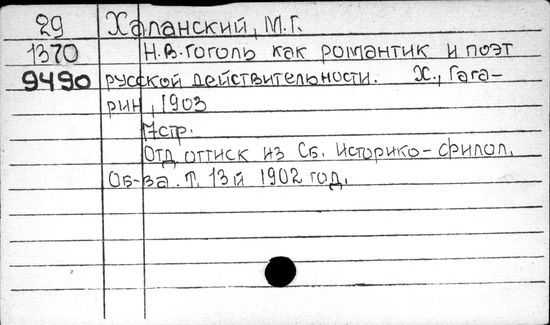 29 Халанский, М.Г.
1370 Н.В.Гоголь как романтик и поэт
9490 русской действительности. Х., Гага-
рин, 1903
17стр.
Отд. оттиск из Сб. Историко-филол.
Об-ва. Т. 13й 1902 год.